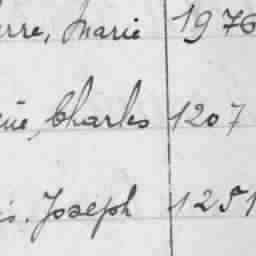 erre, Marie 1976
Charles 1207
Joseph 1251